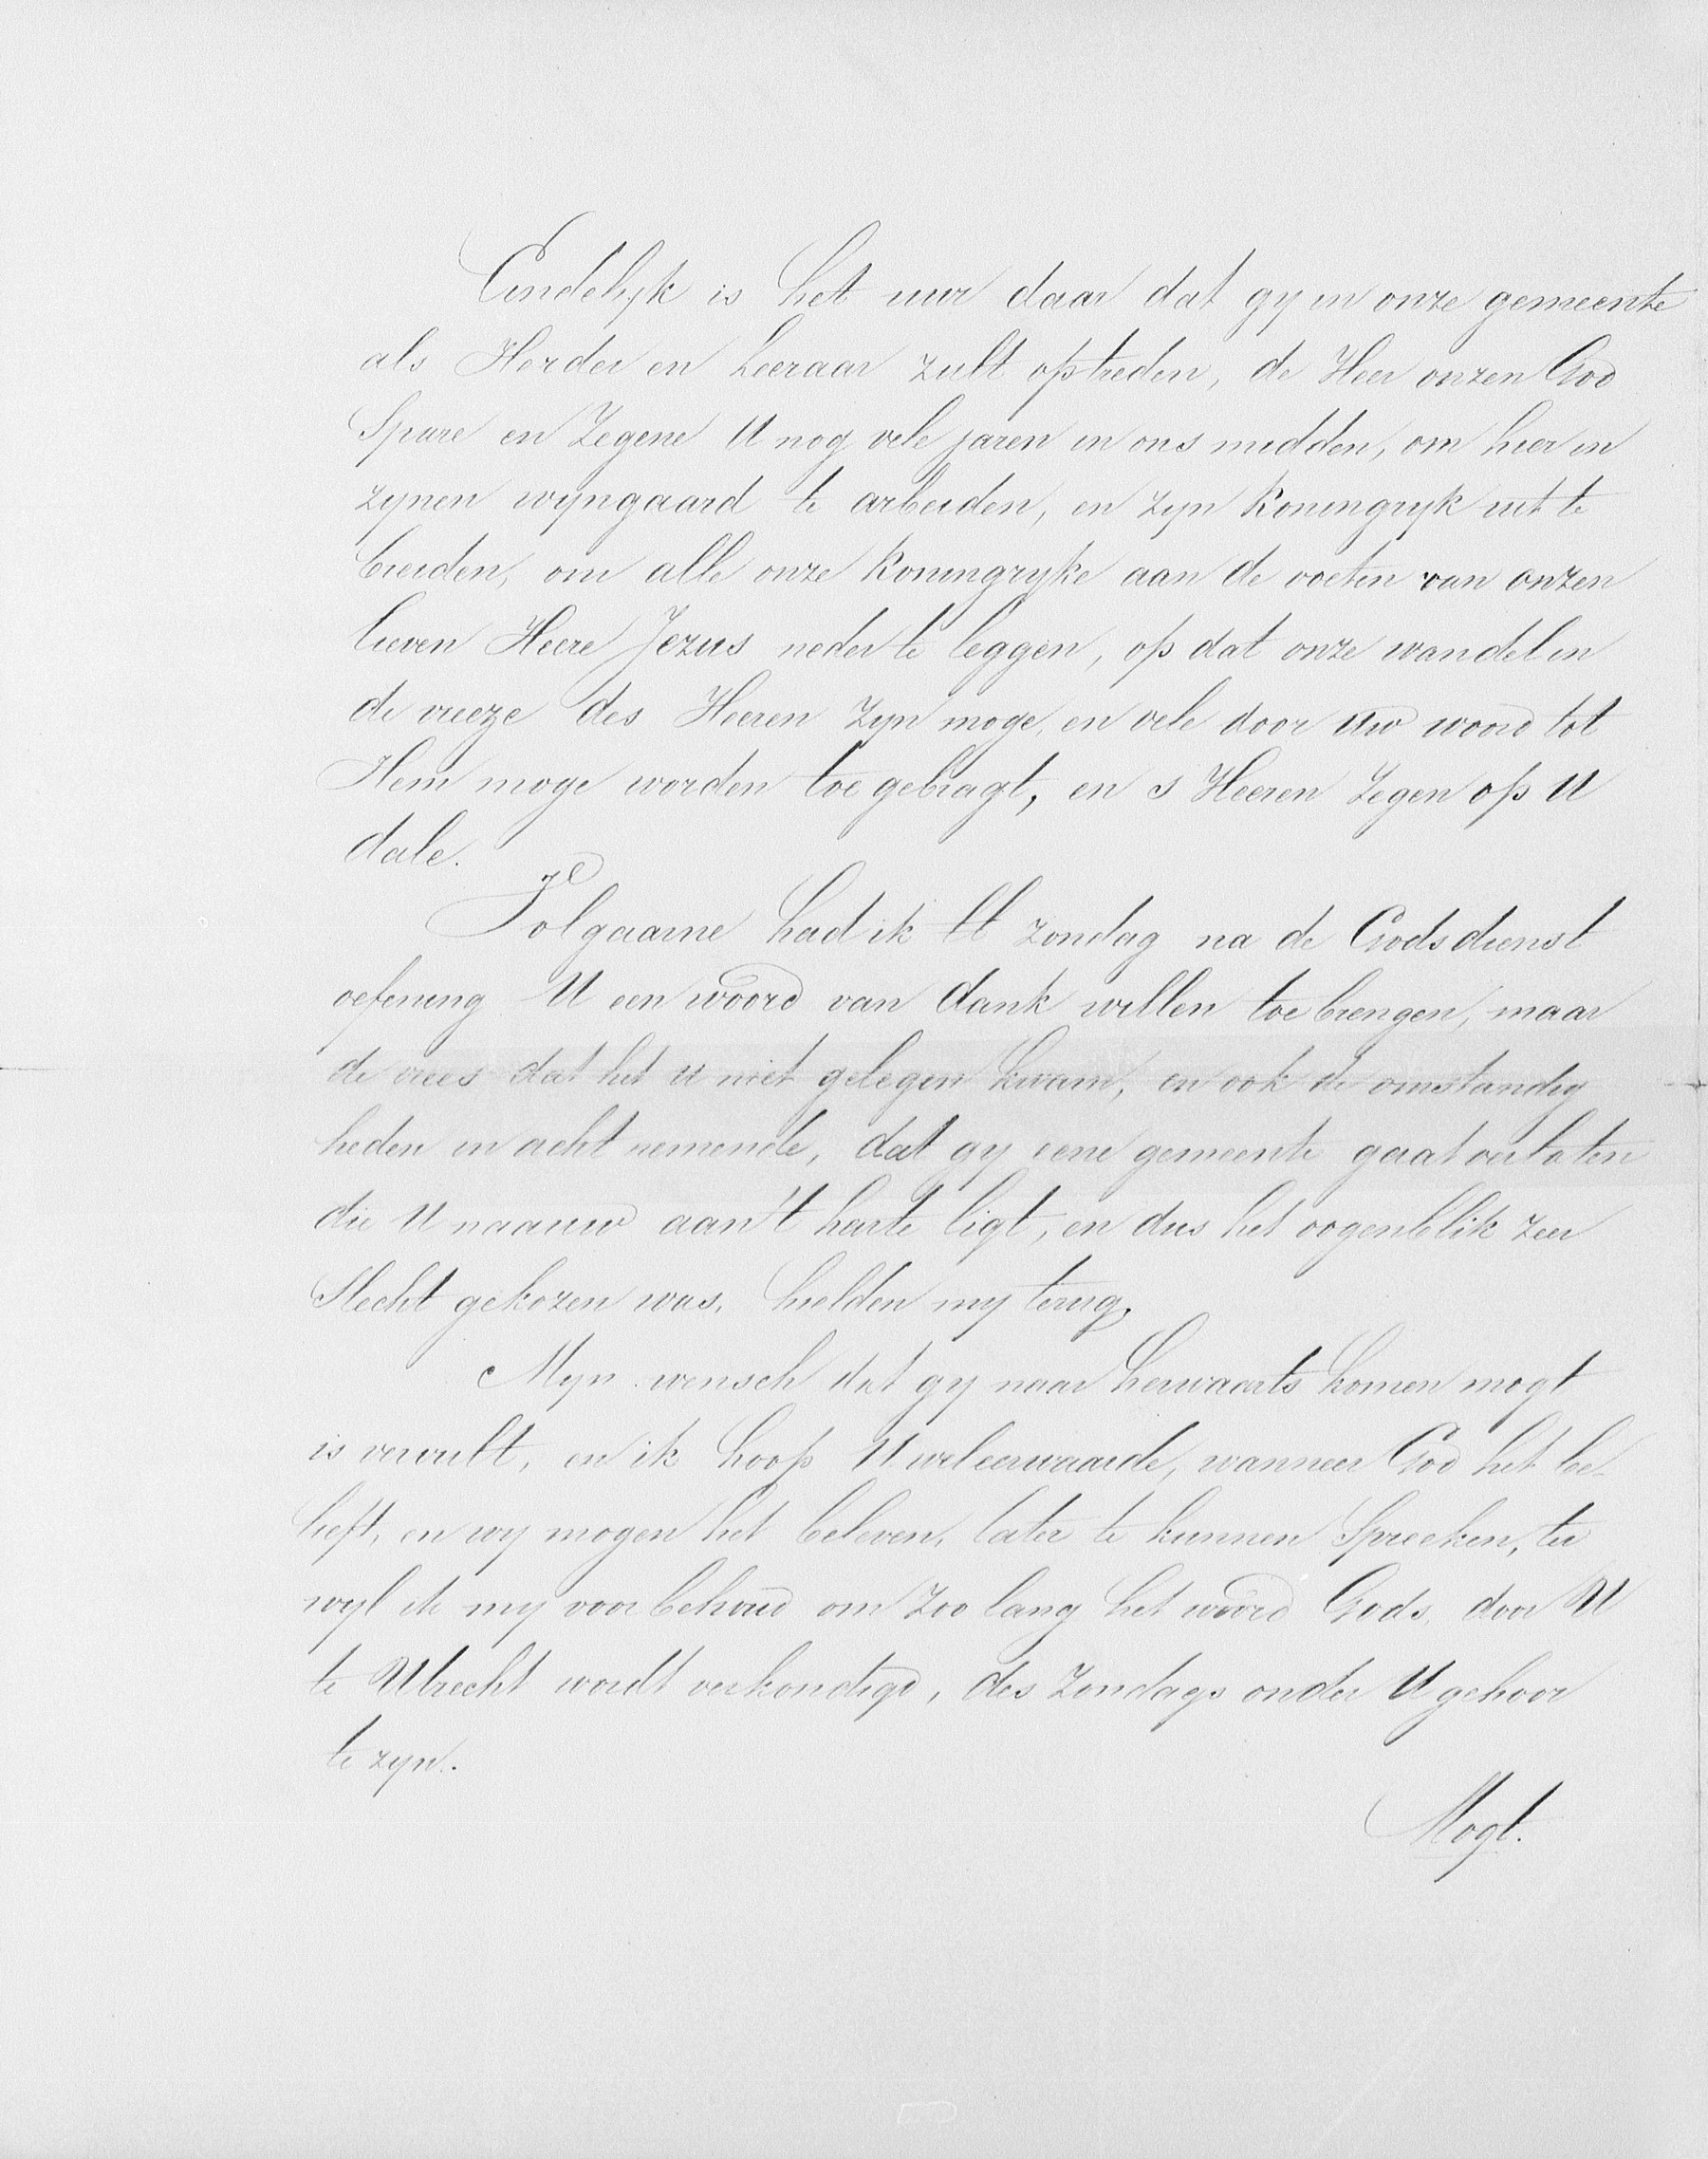 Eindelyk is het uur daar dat gy in onze gemeente
als Herder en Leeraar zult optreden, de Heer onzen God
Spare en Zegene U nog vele jaren in ons midden, om hier in
zynen wyngaard te arbeiden, en zyn Koningryk uit te
breiden, om alle onze Koningryke aan de voeten van onzen
lieven Heere Jezus neder te leggen, op dat onze wandel in
de vreeze des Heeren zyn moge, en vele door Uw woord tot
Hem moge worden toe gebragt, en s Heeren Zegen op U
dale.
Volgaarne had ik ll zondag na de Godsdienst
oefening U een woord van dank willen toe brengen, maar
de vrees dat het u niet gelegen kwam, en ook de omstandig
heden in acht nemende, dat gy eene gemeente gaat verlaten
die U naauw aan't harte ligt, en dus het oogenblik zeer
Slecht gekozen was, hielden my terug.
Myn wensch dat gy naar herwaarts komen mogt
is vervult, en ik hoop U weleerwaarde, wanneer God het be-
lieft, en wy mogen het beleven, later te kunnen Spreeken, ter
wyl ik my voor behoud om zoo lang het woord Gods, door U
te Utrecht wordt verkondigd, des Zondags onder U gehoor
te zyn.
Mogt.